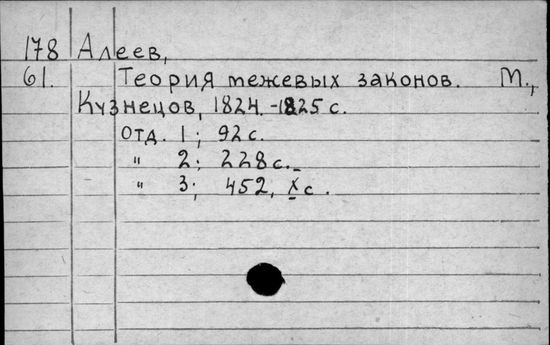 178 Алеев,
61. Теория межевых законов. М.,
Кузнецов, 1824.-1825 с.
Отд. 1; 92 с.
" 2; 228 с.
" 3; 452, X с.